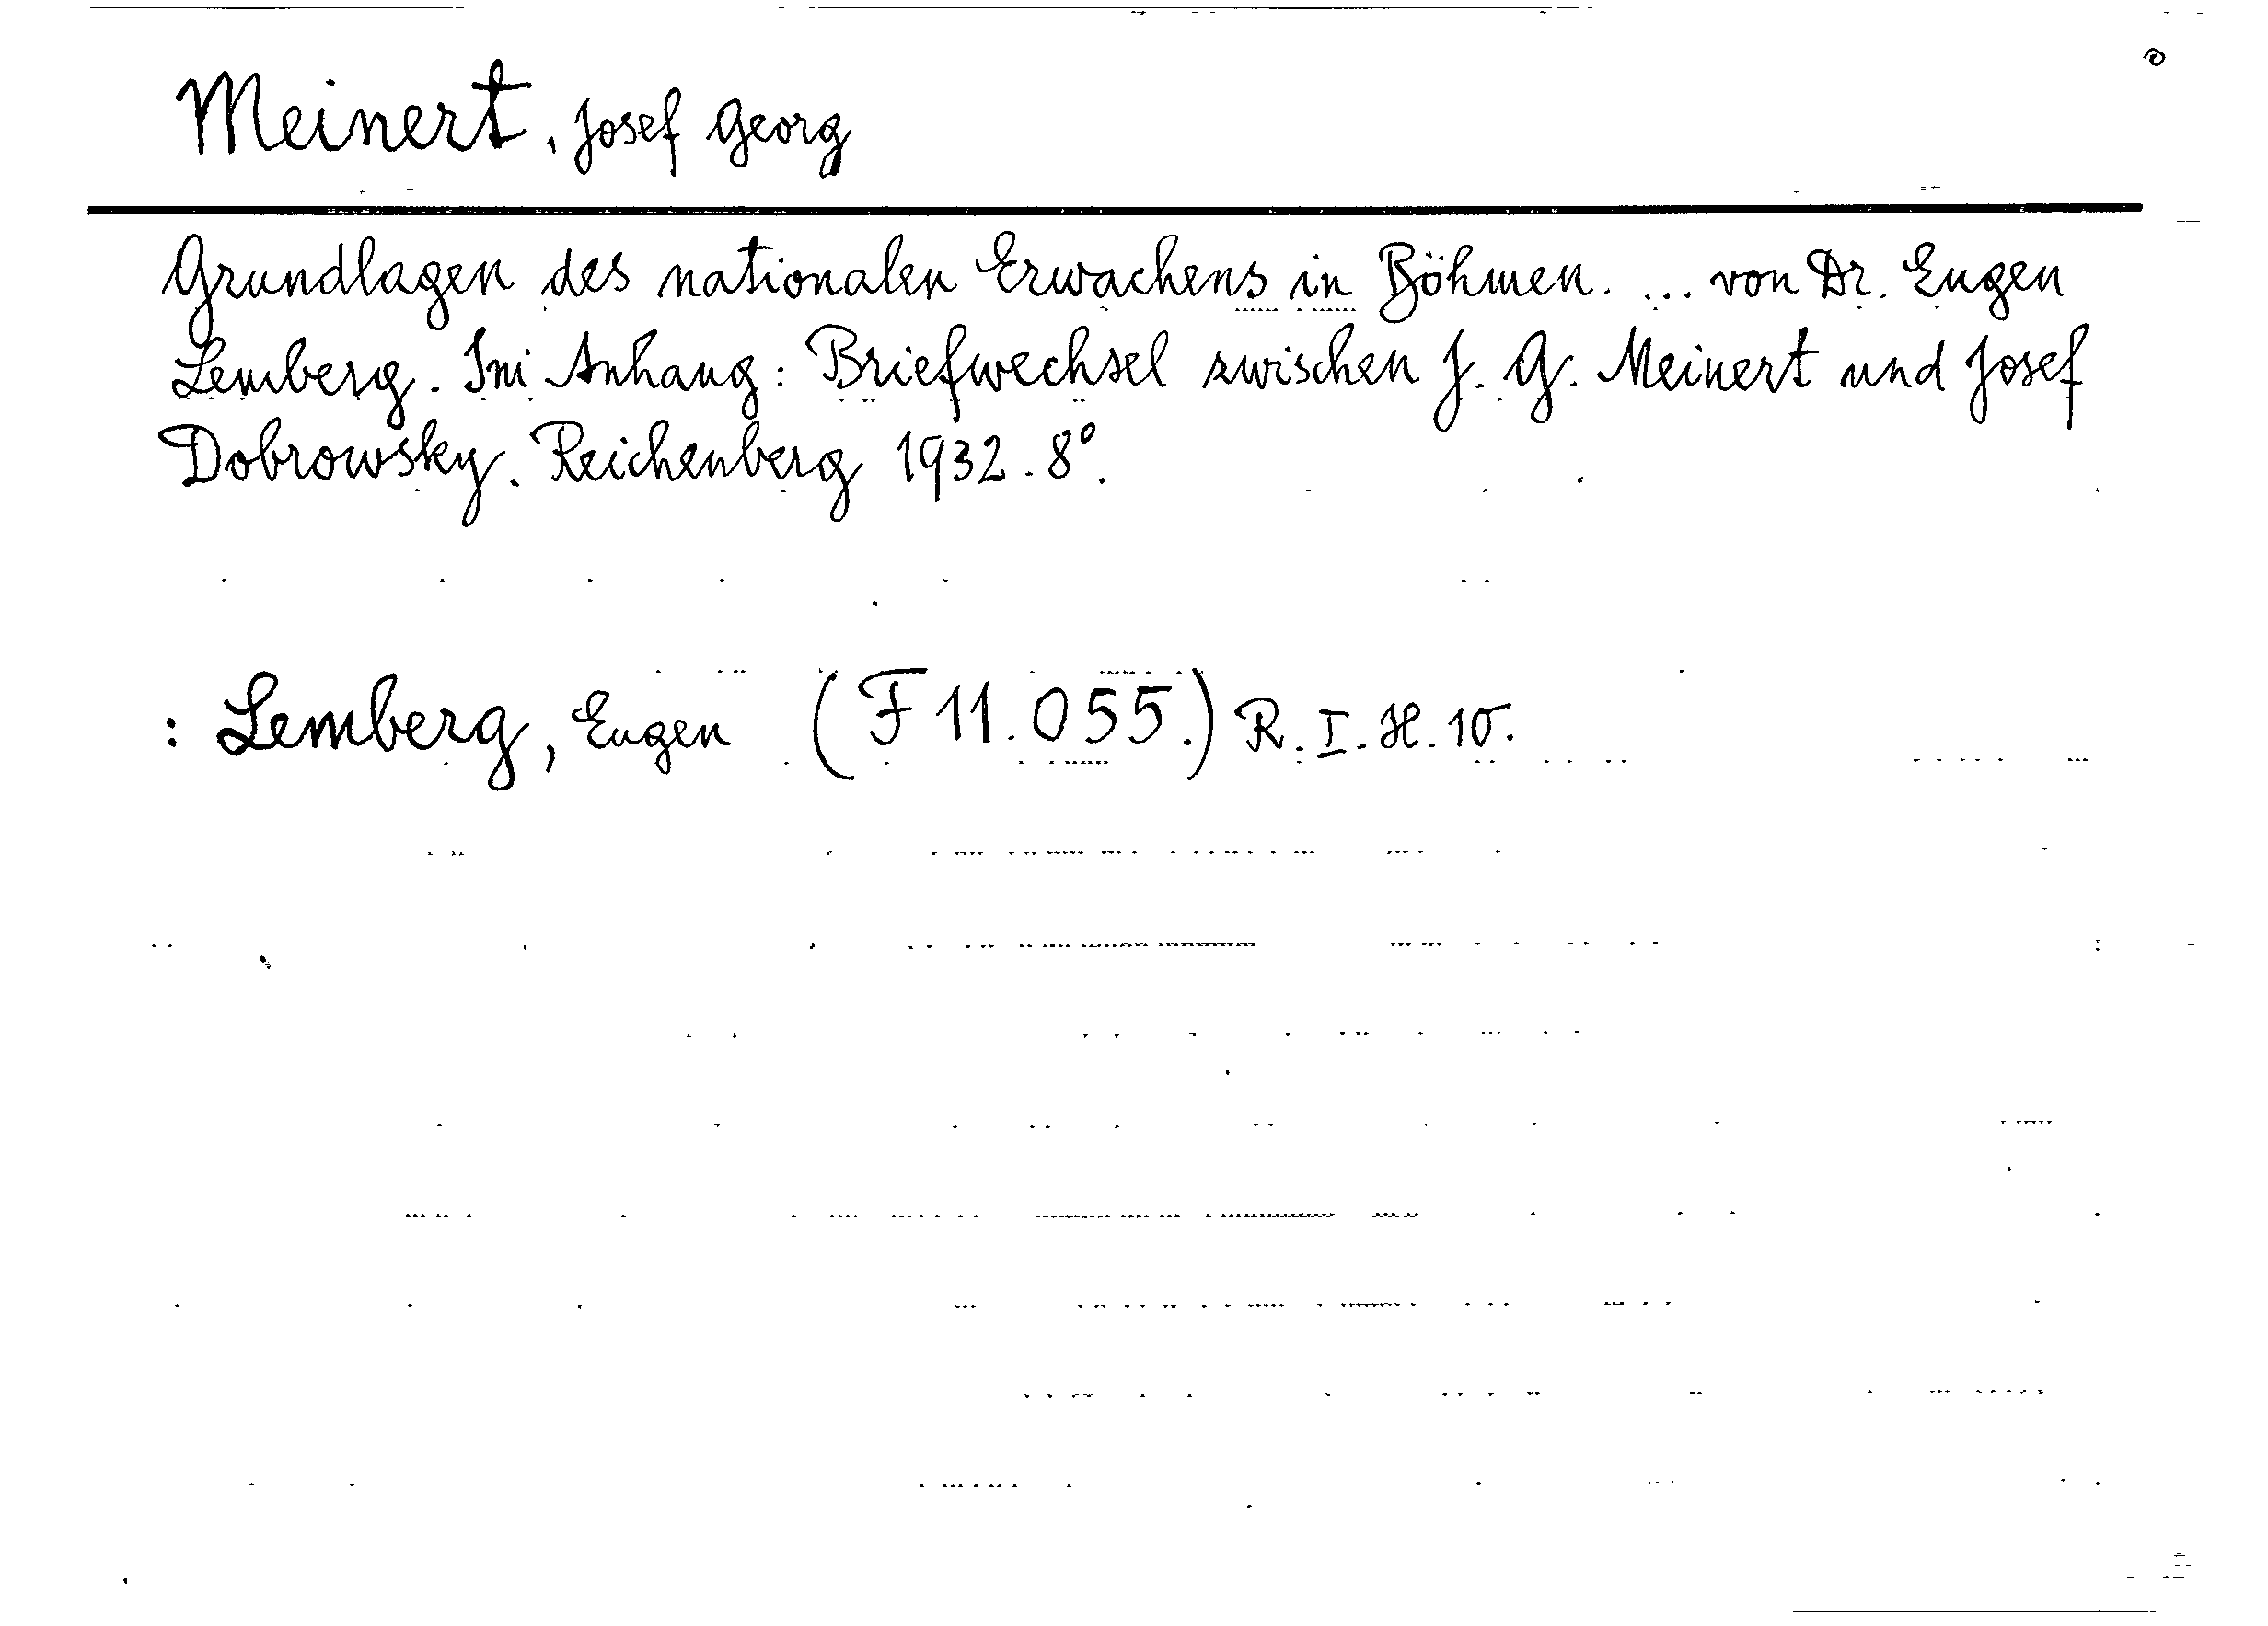 Meinert, Josef Georg
Grundlagen des nationalen Erwachens in Böhmen. ... von Dr. Eugen
Lemberg. Im Anhang: Briefwechsel zwischen J. G. Meinert und Josef
Dobrowsky. Reichenberg 1932. 8°.
: Lemberg, Eugen (F 11.055.) R. I. H. 10.